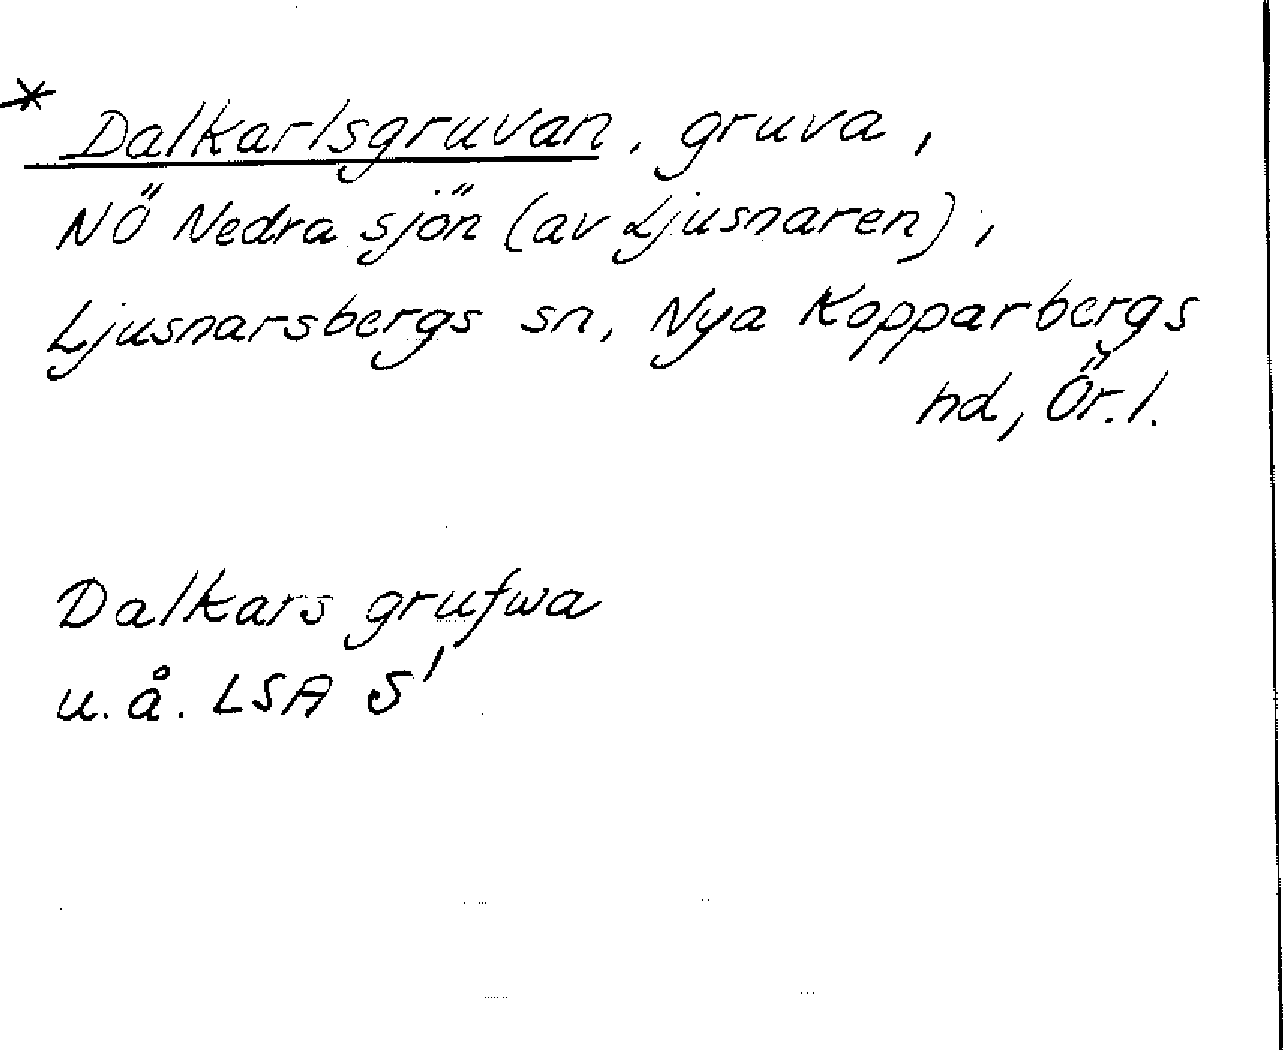 * Dalkarlsgruvan, gruva,
NÖ Nedra sjön (av Ljusnaren),
Ljusnarsbergs sn, Nya Kopparbergs
hd, Ör. l.
Dalkars grufwa
u. å. LSA S'